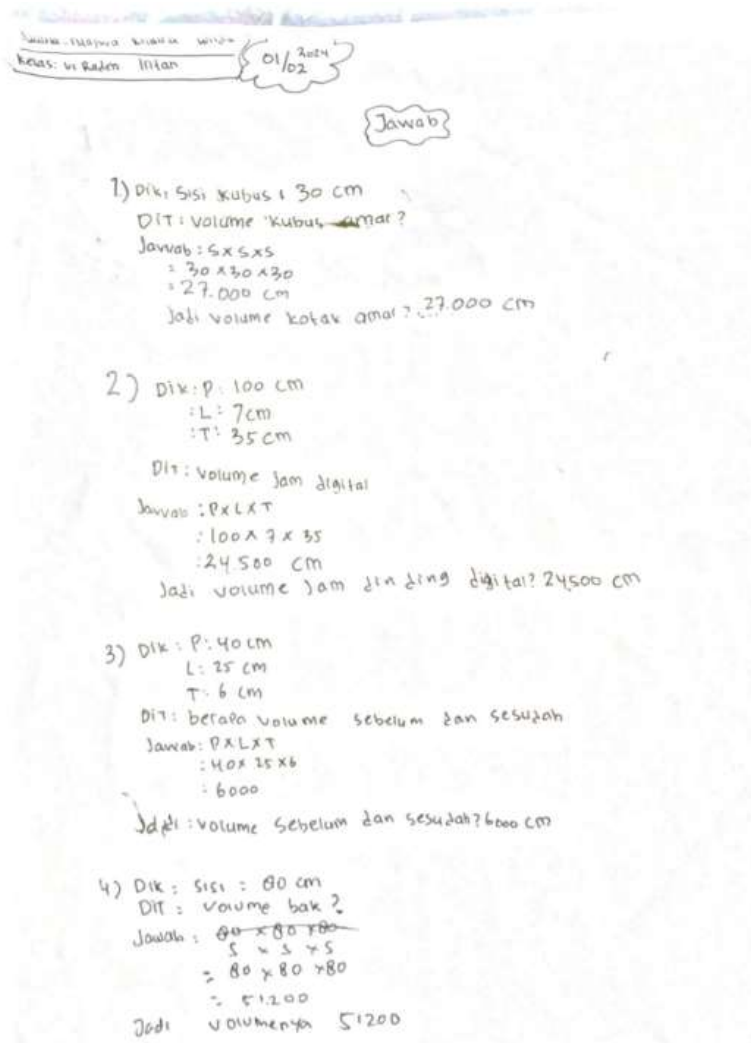 Kelas: VI Raden Intan
01/02 2024
Jawab
1) Dik: Sisi Kubus : 30 cm
DIT: Volume Kubus amar?
Jawab: S x S x S
= 30 x 30 x 30
= 27.000 cm
Jadi volume kotak amar? 27.000 cm
2) Dik: P: 100 cm
: L: 7cm
: T: 35 cm
DIT: Volume Jam digital
Jawab : P x L x T
: 100 x 7 x 35
: 24.500 cm
Jadi volume Jam dinding digital? 24,500 cm
3) Dik : P: 40 cm
L: 25 cm
T: 6 cm
DIT: berapa volume sebelum dan sesudah
Jawab: P x L x T
: 40 x 25 x 6
: 6000
Jadi : volume sebelum dan sesudah? 6000 cm
4) Dik : Sisi : 80 cm
DIT : Volume bak ?
Jawab : 80 x 80 x 80
S x S x S
= 80 x 80 x 80
= 51.200
Jadi volumenya 51200